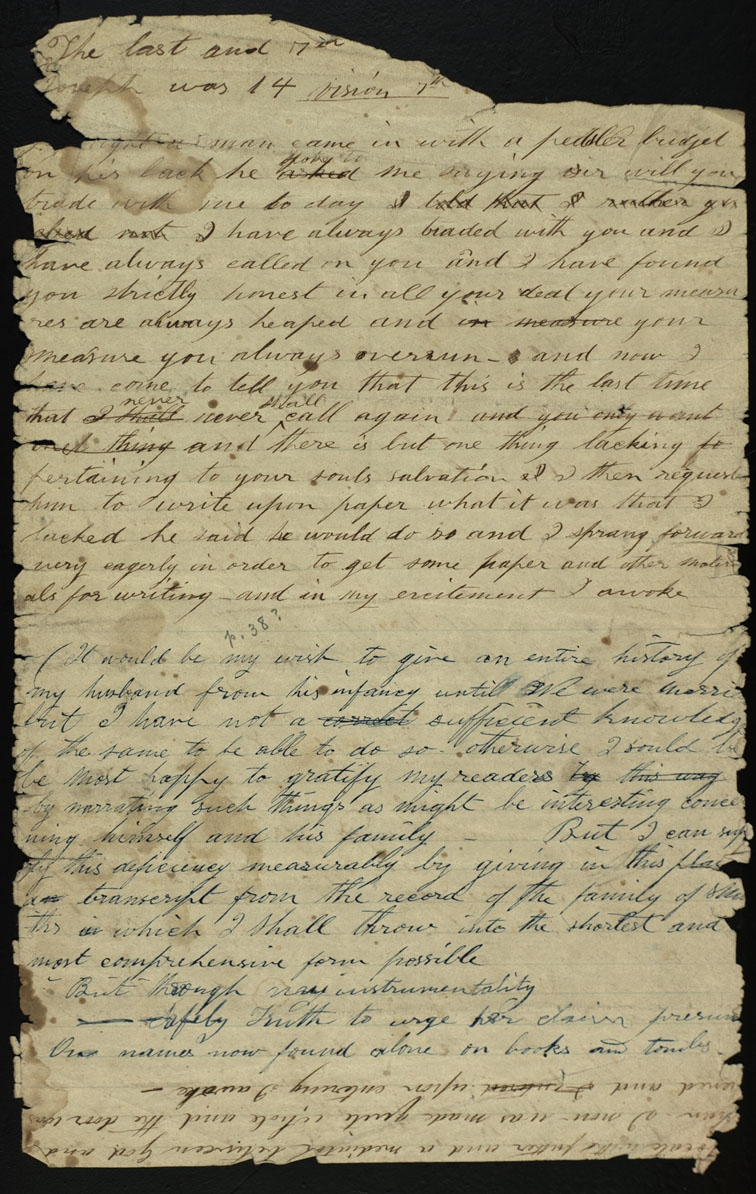 The last and 7th
Joseph was 14 vision 7th
man came in with a pedler budget
on his back he asked spoke to me saying sir will you
trade with me to day I told that I rather
asked not I have always traded with you and I
have always called on you and I have found
you strictly honest in all your deal your measu
res are always heaped and in measure your
measure you always overrun and now I
have come to tell you that this is the last time
that I shall never never shall call again and you only want
one thing and there is but one thing lacking to
pertaining to your souls salvation I then request
him to write upon paper what it was that I
lacked he said he would do so and I sprang forward
very eagerly in order to get some paper and other materi
als for writing and in my excitement I awoke
p. 38?
(It would be my wish to give an entire history of
my husband from his infancy until We were marri
but I have not a correct sufficient knowledg
of the same to be able to do so otherwise I sould be
be most happy to gratify my readers by this way
by narrating such things as might be interesting concer
ning himself and his family — But I can supp
ly this deficiency measurably by giving in this place
an transcript from the record of the family of Smi
ths in which I shall throw into the shortest and
most comprehensive form possible
But through
Truth to urge her claim presum
Our names now found alone on books and tombs.
ened and I entered upon entering I awoke —
than I now was made quite whole and the door was
and a mediator between God and